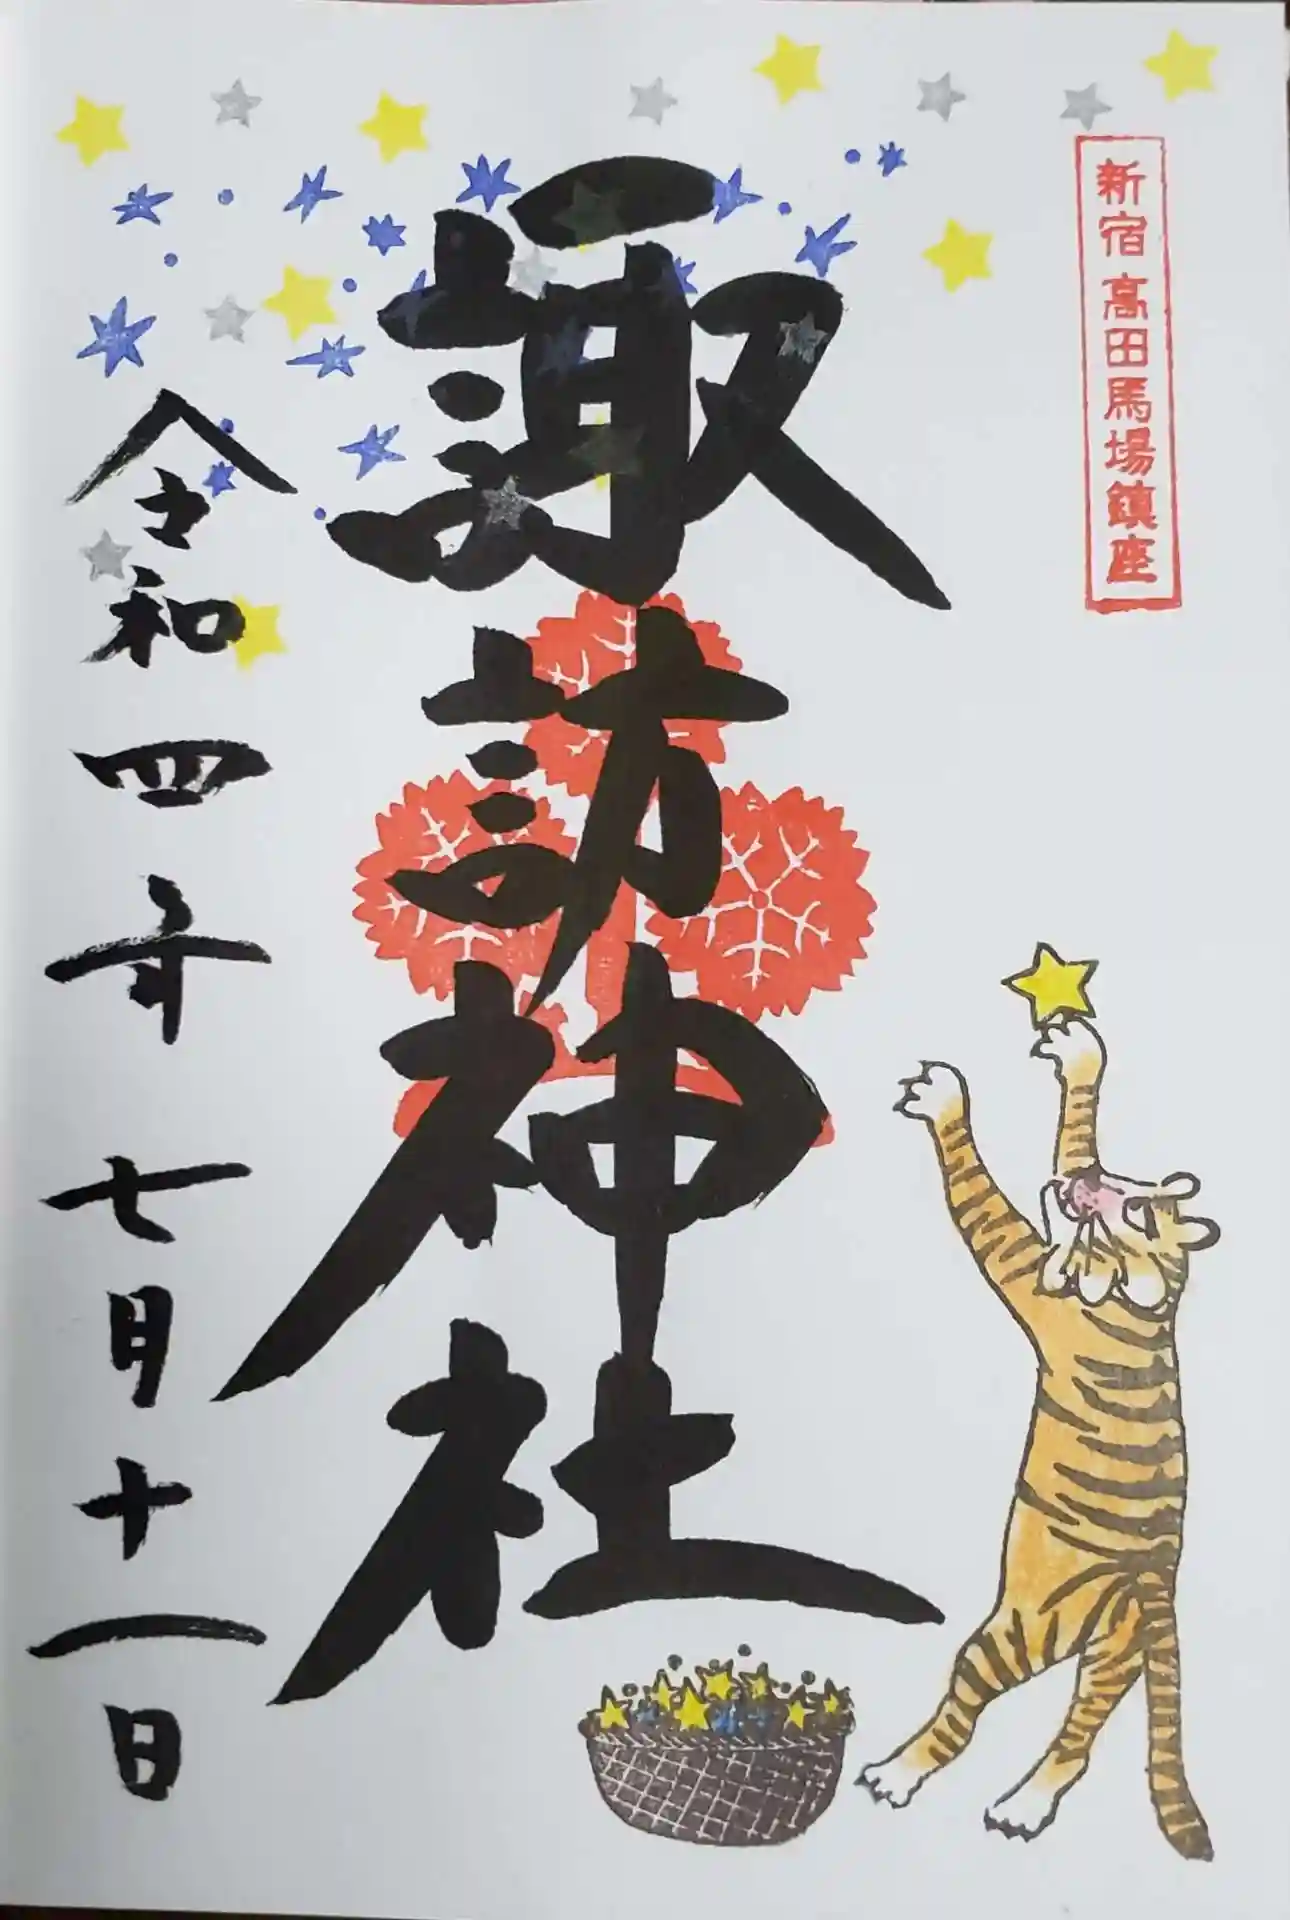 新宿 高田馬場鎮座
諏訪神社
令和四年七月十一日